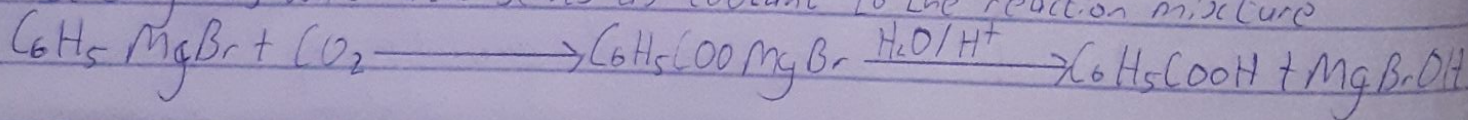 as coolant to the reaction mixture
C6H5 MgBr + CO2 ⟶ C6H5COO MgBr H2O/H+ ⟶ C6H5COOH + MgBrOH